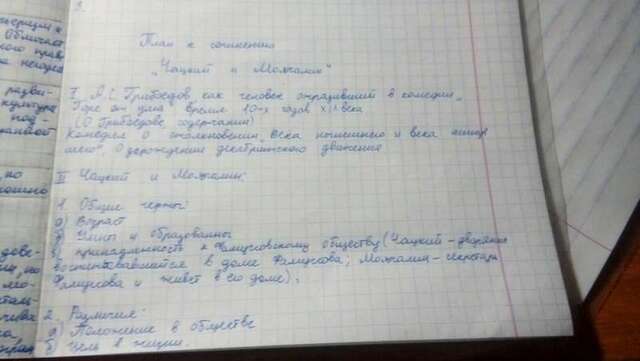 План к сочинению
"Чацкий и Молчалин"
I. А.С. Грибоедов как человек отразивший в комедии "
Горе от ума" время 10-х годов XIX века
(О Грибоедове содержании)
Комедия о столкновении "века нынешнего и века минув
шего". О зарождении декабрис движения
II Чацкий и Молчалин:
1. Общие черты:
а) Возраст
б) Умны и образованны
в) принадлежность к Фамусовскому обществу (Чацкий - дворянин
воспитывавшийся в доме Фамусова; Молчалин - секретарь
Фамусова и живёт в его доме).
2. Различия:
а) Положение в обществе
б) Цель в жизни.